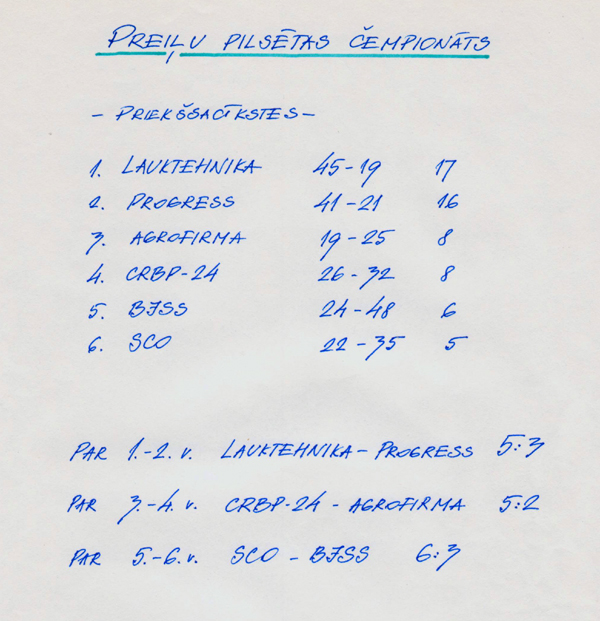 PREIĻU PILSĒTAS ČEMPIONĀTS
- PRIEKŠSACĪKSTES -
1. LAUKTEHNIKA 45-19 17
2. PROGRESS 41-21 16
3. AGROFIRMA 19-25 8
4. CRBP-24 26-32 8
5. BJSS 24-48 6
6. SCO 22-35 5
PAR 1.-2. v. LAUKTEHNIKA - PROGRESS 5:3
PAR 3.-4. v. CRBP-24 - AGROFIRMA 5:2
PAR 5.-6. v. SCO - BJSS 6:3